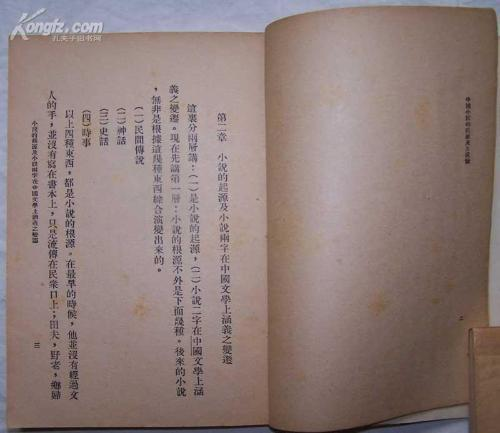 Kongfz.com
孔夫子旧书网
二
第二章　小說的起源及小說兩字在中國文學上涵義之變遷
這裏分兩層講：(一)是小說的起源，(二)小說二字在中國文學上涵
義之變遷。現在先講第一層：小說的根源不外是下面幾種。後來的小說
，無非是根據這幾種東西綜合演變出來的。
(一)民間傳說
(二)神話
(三)史話
(四)時事
以上四種東西，都是小說的根源。在最早的時候，他並沒有經過文
人的手，並沒有寫在書本上，只是流傳在民衆口上；田夫，野老，鄉婦
小說的起源及小說兩字在中國文學上涵義之變遷
三